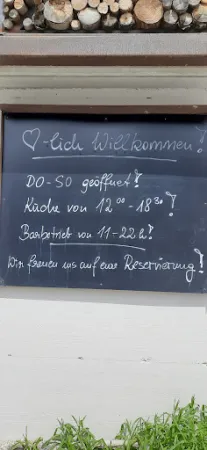 ♡-lich Willkommen!
DO-SO geöffnet!
Küche von 12⁰⁰ - 18³⁰!
Barbetrieb von 11-22h!
Wir freuen uns auf eure Reservierung!